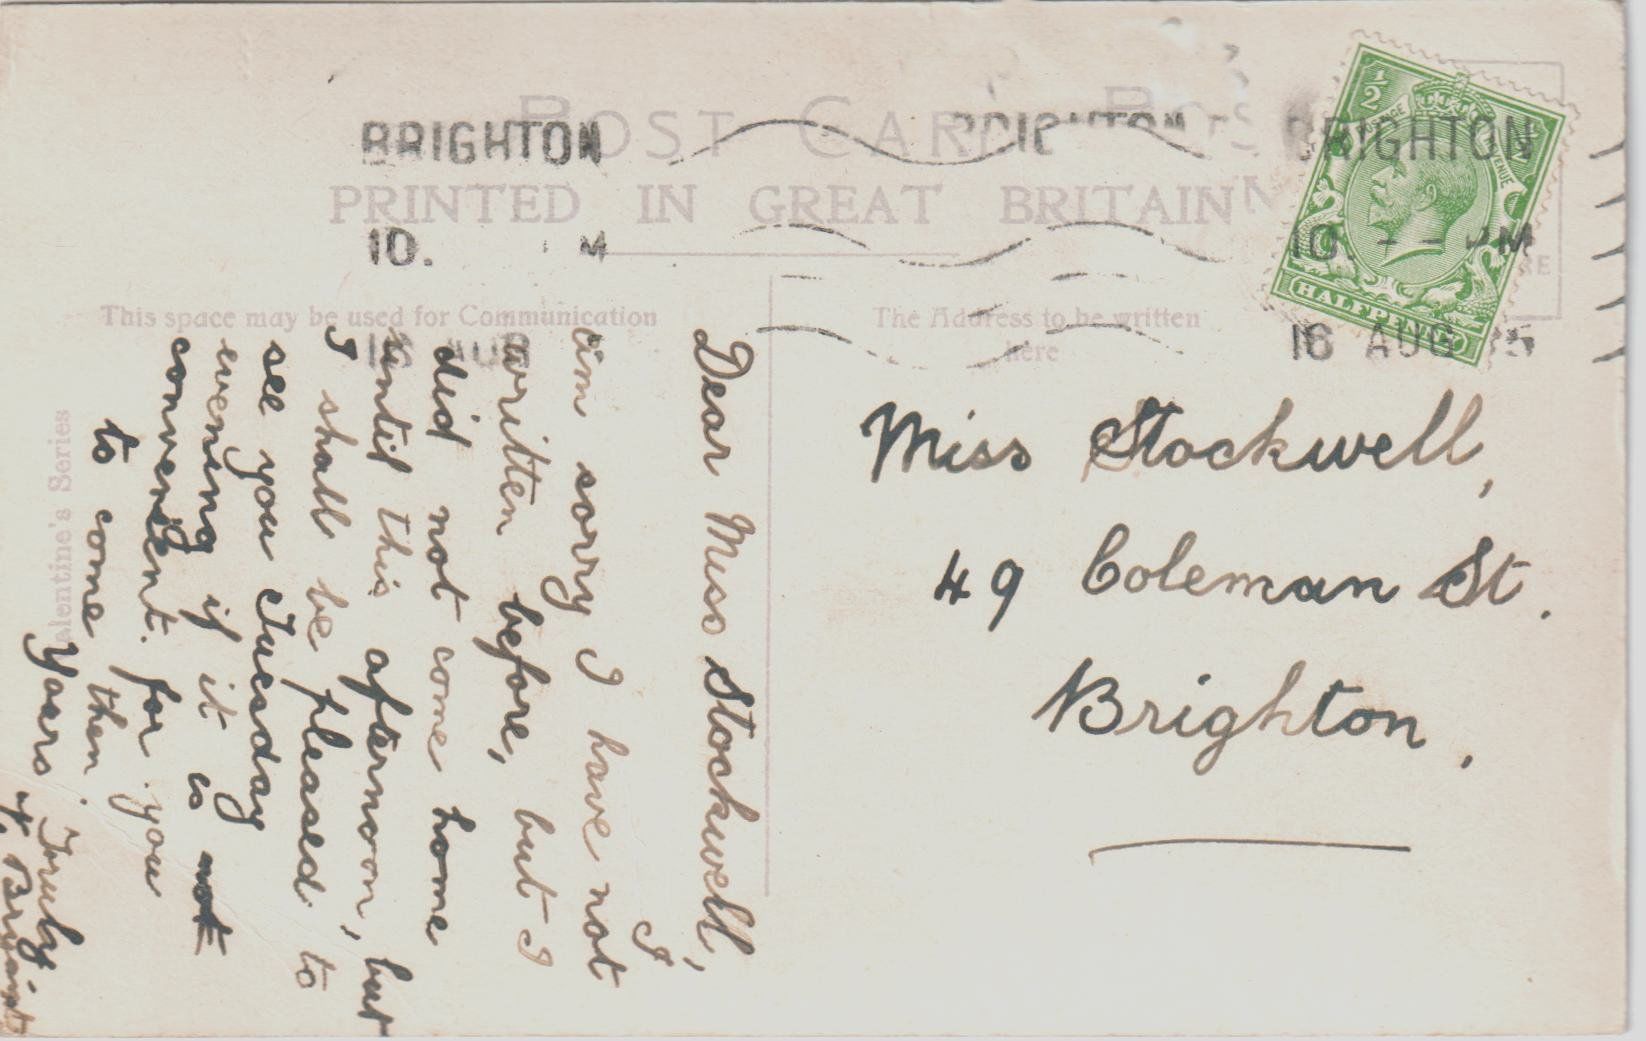 POST CARD
PRINTED IN GREAT BRITAIN
BRIGHTON
BRIGHTON
BRIGHTON
10. M
10. - - PM
16 AUG
16 AUG 15
HALFPENNY
½
This space may be used for Communication
The Address to be written
here
Valentine's Series
Dear Miss Stockwell,
I
am sorry I have not
written before, but I
did not come home
until this afternoon, but
I shall be pleased to
see you Tuesday
evening if it is not
convenient. for you
to come then.
Yours Truly,
Miss Stockwell,
49 Coleman St.
Brighton.